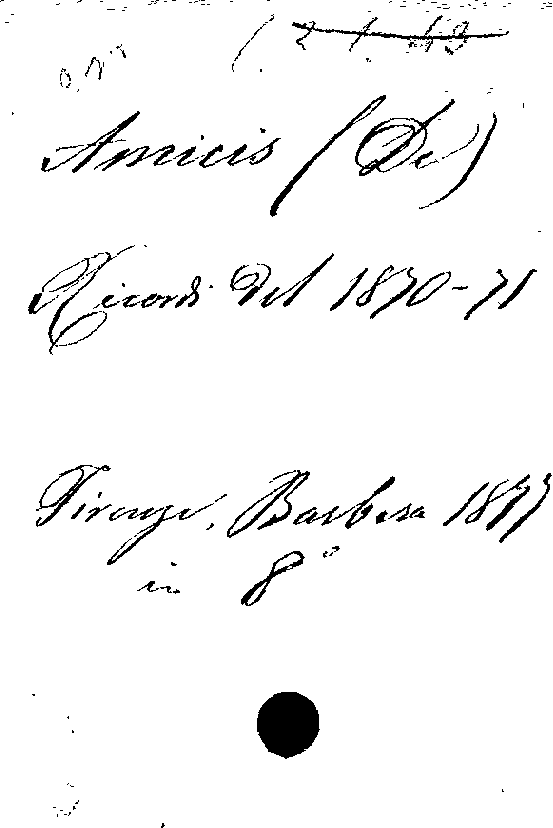 Amicis (De)
Ricordi del 1870-71
Firenze, Barbera 1877
in 8°